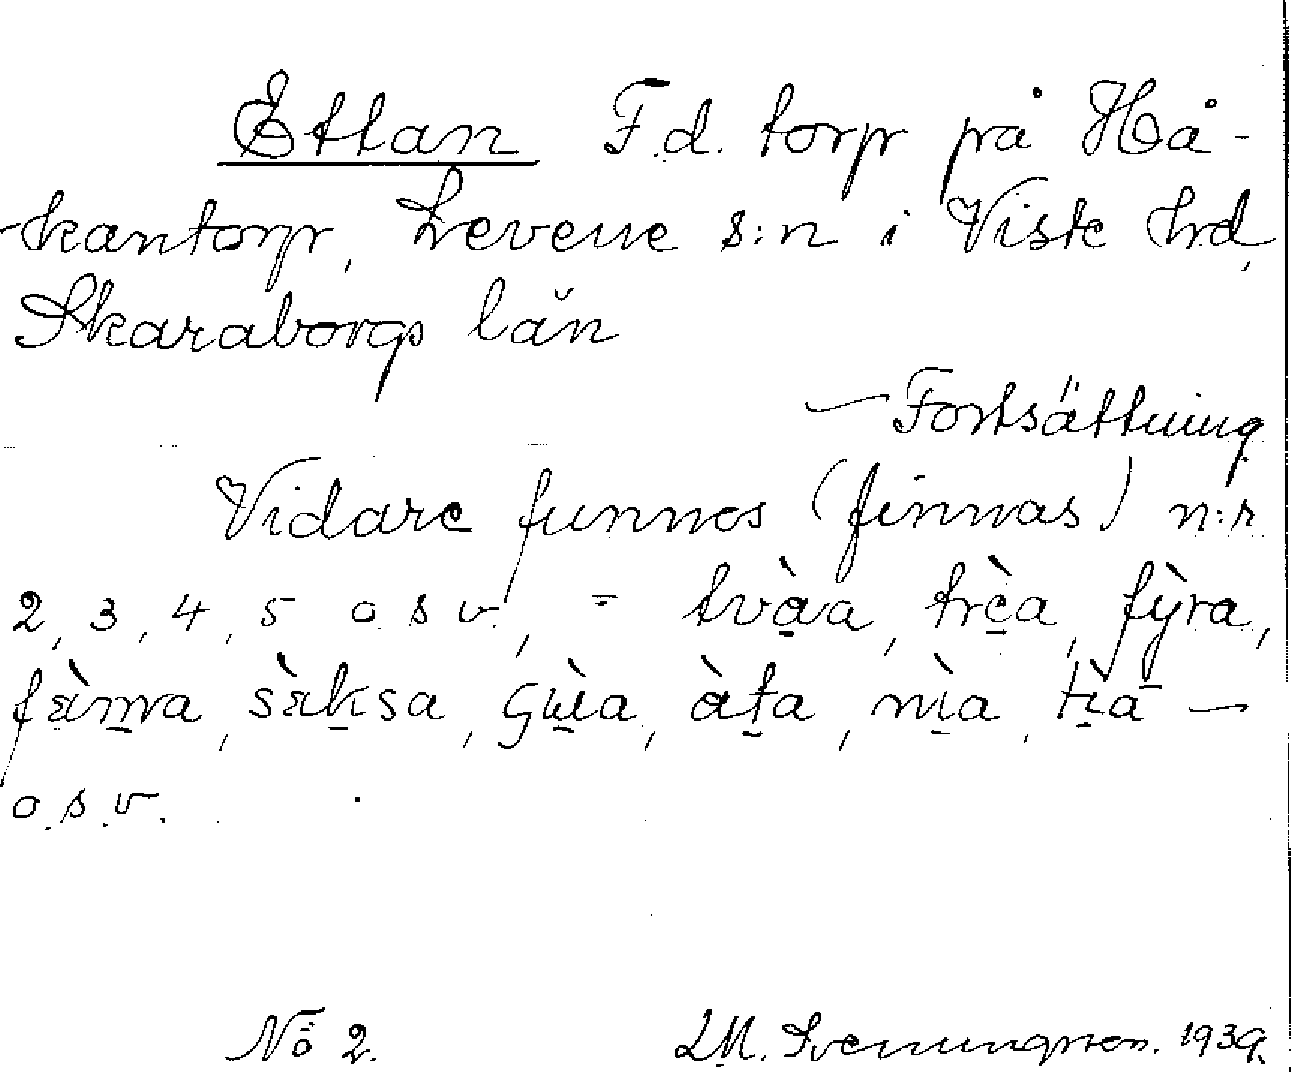 Ettan F.d. torp på Hå-
kantorp, Levene s:n i Viste hrd,
Skaraborgs län
— Fortsättning
Vidare funnos (finnas) n:r
2, 3, 4, 5 o s v., = tvàva, trèa, fỳra,
fæ̀mma, sæ̀ksa, ɕɯ̀a, àta, nìa, tìa —
o.s.v.
No 2. L.M. Svenungsson. 1939.